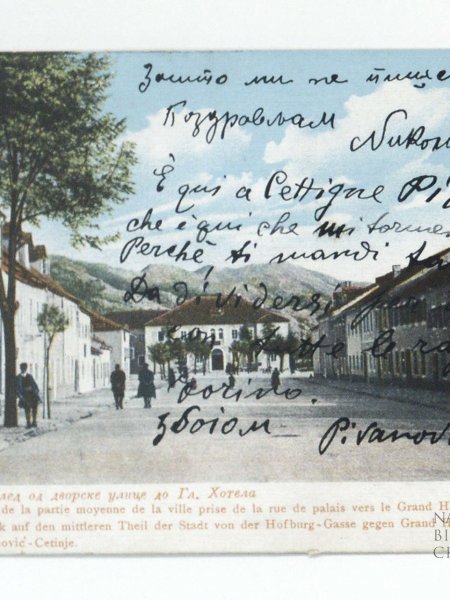 Зашто ми не пишеш
Поздрављам Nikol
È qui a Cettigne Pi
che è qui che mi tormen
Perchè ti mandi ta
Da di vidersi per
con tutte le rag
Torino.
збогом Pivanov
лед од дворске улице до Гл. Хотела
de la partie moyenne de la ville prise de la rue de palais vers le Grand H
k auf den mittleren Theil der Stadt von der Hofburg-Gasse gegen Grand H
ović-Cetinje.
NA
BI
CH